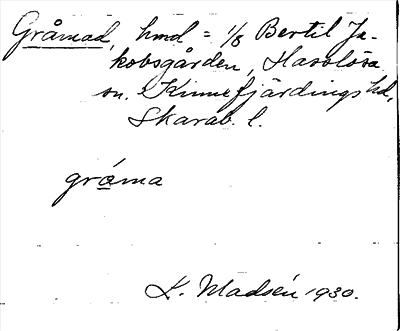 Gråmad, hmd = 1/8 Bertil Ja-
kobsgården, Harlösa
sn. Kinnefjärdings hd,
Skarab. l.
gråma
K. Madsén 1930.